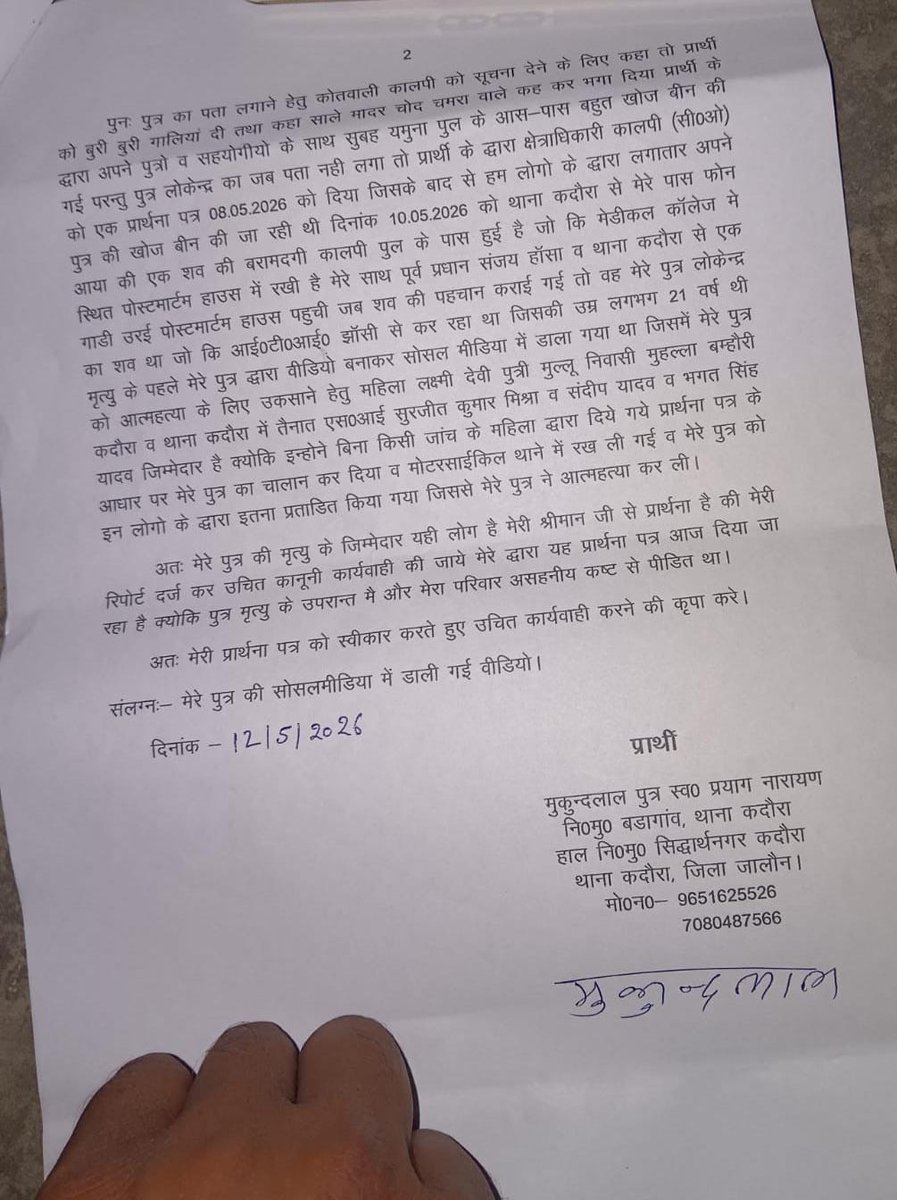 2
पुनः पुत्र का पता लगाने हेतु कोतवाली कालपी को सूचना देने के लिए कहा तो प्रार्थी
को बुरी बुरी गालियां दी तथा कहा साले मादर चोद चमरा वाले कह कर भगा दिया प्रार्थी के
द्वारा अपने पुत्रो व सहयोगीयो के साथ सुबह यमुना पुल के आस–पास बहुत खोज बीन की
गई परन्तु पुत्र लोकेन्द्र का जब पता नही लगा तो प्रार्थी के द्वारा क्षेत्राधिकारी कालपी (सी०ओ)
को एक प्रार्थना पत्र 08.05.2026 को दिया जिसके बाद से हम लोगो के द्वारा लगातार अपने
पुत्र की खोज बीन की जा रही थी दिनांक 10.05.2026 को थाना कदौरा से मेरे पास फोन
आया की एक शव की बरामदगी कालपी पुल के पास हुई है जो कि मेडीकल कॉलेज मे
स्थित पोस्टमार्टम हाउस में रखी है मेरे साथ पूर्व प्रधान संजय हॉसा व थाना कदौरा से एक
गाडी उरई पोस्टमार्टम हाउस पहुची जब शव की पहचान कराई गई तो वह मेरे पुत्र लोकेन्द्र
का शव था जो कि आई०टी०आई० झॉसी से कर रहा था जिसकी उम्र लगभग 21 वर्ष थी
मृत्यु के पहले मेरे पुत्र द्वारा वीडियो बनाकर सोसल मीडिया में डाला गया था जिसमें मेरे पुत्र
को आत्महत्या के लिए उकसाने हेतु महिला लक्ष्मी देवी पुत्री मुल्लू निवासी मुहल्ला बम्हौरी
कदौरा व थाना कदौरा में तैनात एस०आई सुरजीत कुमार मिश्रा व संदीप यादव व भगत सिंह
यादव जिम्मेदार है क्योकि इन्होने बिना किसी जांच के महिला द्वारा दिये गये प्रार्थना पत्र के
आधार पर मेरे पुत्र का चालान कर दिया व मोटरसाईकिल थाने में रख ली गई व मेरे पुत्र को
इन लोगो के द्वारा इतना प्रताडित किया गया जिससे मेरे पुत्र ने आत्महत्या कर ली।
अतः मेरे पुत्र की मृत्यु के जिम्मेदार यही लोग है मेरी श्रीमान जी से प्रार्थना है की मेरी
रिपोर्ट दर्ज कर उचित कानूनी कार्यवाही की जाये मेरे द्वारा यह प्रार्थना पत्र आज दिया जा
रहा है क्योकि पुत्र मृत्यु के उपरान्त मै और मेरा परिवार असहनीय कष्ट से पीडित था।
अतः मेरी प्रार्थना पत्र को स्वीकार करते हुए उचित कार्यवाही करने की कृपा करे।
संलग्नः– मेरे पुत्र की सोसलमीडिया में डाली गई वीडियो।
दिनांक – 12/5/2026
प्रार्थी
मुकुन्दलाल पुत्र स्व० प्रयाग नारायण
नि०मु० बडागांव, थाना कदौरा
हाल नि०मु० सिद्धार्थनगर कदौरा
थाना कदौरा, जिला जालौन।
मो०न०– 9651625526
7080487566
मुकुन्दलाल